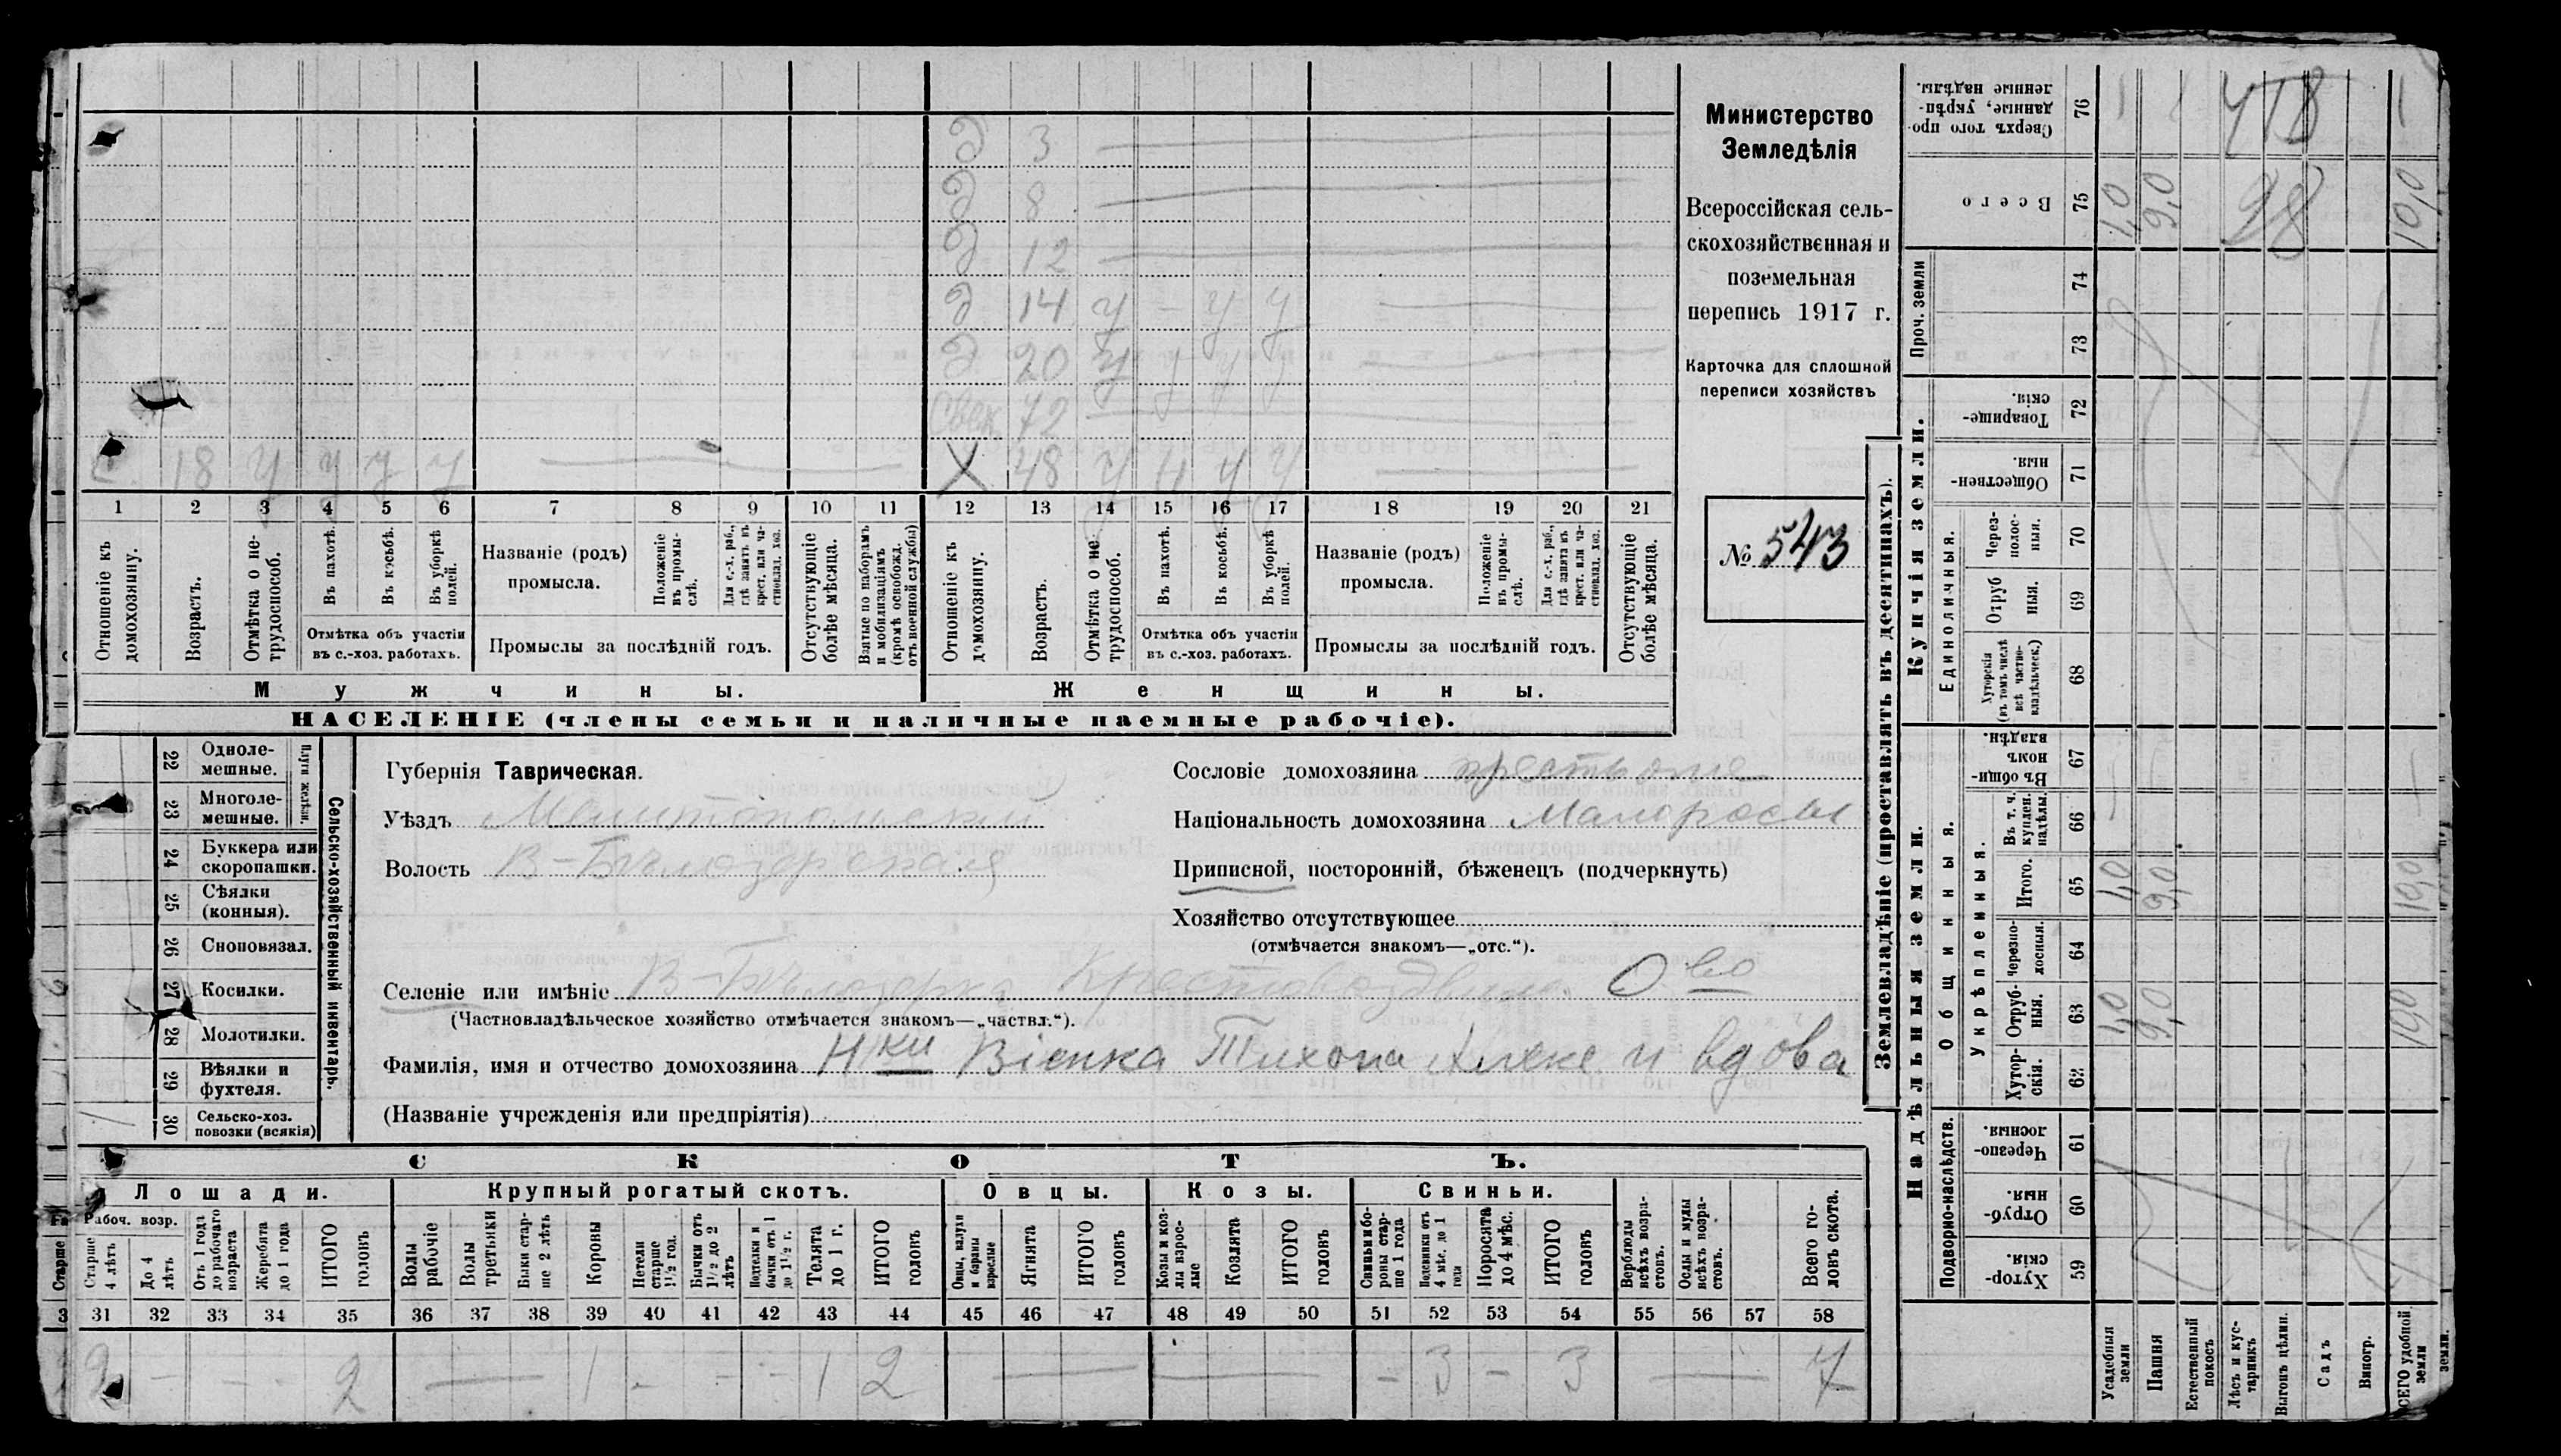 Министерство
Земледѣлія
Всероссійская сель-
скохозяйственная и
поземельная
перепись 1917 г.
Карточка для сплошной
переписи хозяйствъ
№ 543
3
8
12
14 у - у у
20 у у у у
Свек. 72
18 у у у у
Х 48 у у у у
1 2 3 4 5 6 7 8 9 10 11 12 13 14 15 16 17 18 19 20 21
Отношеніе къ домохозяину.
Возрастъ.
Отмѣтка о не-трудоспособ.
Въ пахотѣ.
Въ косьбѣ.
Въ уборкѣ полей.
Отмѣтка объ участіи
въ с.-хоз. работахъ.
Названіе (родъ)
промысла.
Положеніе въ промы-слѣ.
Для с.-х. раб., гдѣ занятъ въ крест. или ча-стновлад. хоз.
Промыслы за послѣдній годъ.
Отсутствующіе болѣе мѣсяца.
Взятые по наборамъ и мобилизаціямъ (кромѣ освобожд. отъ военной службы)
Отношеніе къ домохозяину.
Возрастъ.
Отмѣтка о не-трудоспособ.
Въ пахотѣ.
Въ косьбѣ.
Въ уборкѣ полей.
Отмѣтка объ участіи
въ с.-хоз. работахъ.
Названіе (родъ)
промысла.
Положеніе въ промы-слѣ.
Для с.-х. раб., гдѣ занята въ крест. или ча-стновлад. хоз.
Промыслы за послѣдній годъ.
Отсутствующіе болѣе мѣсяца.
Мужчины.
Женщины.
НАСЕЛЕНІЕ (члены семьи и наличные наемные рабочіе).
Сельско-хозяйственный инвентарь.
Плуги желѣзн.
22 Одноле-мешные.
23 Многоле-мешные.
24 Буккера или скоропашки.
25 Сѣялки (конныя).
26 Сноповязал.
27 Косилки.
28 Молотилки.
29 Вѣялки и фухтеля.
30 Сельско-хоз. повозки (всякія) 1
Губернія Таврическая.
Уѣздъ Мелитопольскій
Волость В-Бѣлозерская
Сословіе домохозяина крестьяне
Національность домохозяина Малороссы
Приписной, посторонній, бѣженецъ (подчеркнуть)
Хозяйство отсутствующее
(отмѣчается знакомъ—„отс.“).
Селеніе или имѣніе В-Бѣлозерка Крестовоздвиж. О во
(Частновладѣльческое хозяйство отмѣчается знакомъ—„частвл.“).
Фамилія, имя и отчество домохозяина Н ки Віенка Тихона Алекс и вдова
(Названіе учрежденія или предпріятія)
СКОТЪ.
Лошади.
Крупный рогатый скотъ.
Овцы.
Козы.
Свиньи.
Рабоч. возр.
Старше 4 лѣтъ
До 4 лѣтъ
Отъ 1 года до рабочаго возраста
Жеребята до 1 года
ИТОГО головъ
Волы рабочіе
Волы третьяки
Быки стар-ше 2 лѣтъ
Коровы
Нетели старше 1½ год.
Бычки отъ 1½ до 2 лѣтъ
Подтелки и бычки отъ 1 до 1½ г.
Телята до 1 г.
ИТОГО головъ
Овцы, валухи и бараны взрослые
Ягнята
ИТОГО головъ
Козы и коз-лы взрос-лые
Козлята
ИТОГО головъ
Свиньи и бо-ровы стар-ше 1 года
Подсвинки отъ 4 мѣс. до 1 года
Поросята до 4 мѣс.
ИТОГО головъ
Верблюды всѣхъ возра-стовъ.
Ослы и мулы всѣхъ возра-стовъ.
Всего го-ловъ скота.
31 32 33 34 35 36 37 38 39 40 41 42 43 44 45 46 47 48 49 50 51 52 53 54 55 56 57 58
2 - - - 2 — 1 - - - 1 2 — — - 3 - 3 — 7
Землевладѣніе (проставлять въ десятинахъ).
Надѣльныя земли.
Купчія земли.
Проч. земли
Подворно-наслѣдств.
Общинныя.
Укрѣпленныя.
Единоличныя.
59 Хутор-скія.
60 Отруб-ныя.
61 Черезпо-лосныя.
62 Хутор-скія.
63 Отруб-ныя. 1,0 9,0 10,0
64 Черезпо-лосныя.
65 Итого. 1,0 9,0 10,0
66 Въ т. ч. куплен. надѣлы.
67 Въ общи-номъ владѣн.
68 Хуторскія (въ томъ числѣ всѣ частно-владѣльческ.)
69 Отруб ныя.
70 Через-полос-ныя.
71 Обществен-ныя.
72 Товарище-скія.
73
74
75 Всего 1,0 9,0 28 10,0
76 Сверхъ того про-данные, укрѣп-ленные надѣлы. 418
Усадебныя земли
Пашня
Естественный покосъ
Лѣсъ и кус-тарникъ
Выгонъ цѣлин.
Садъ
Виногр.
ВСЕГО удобной земли